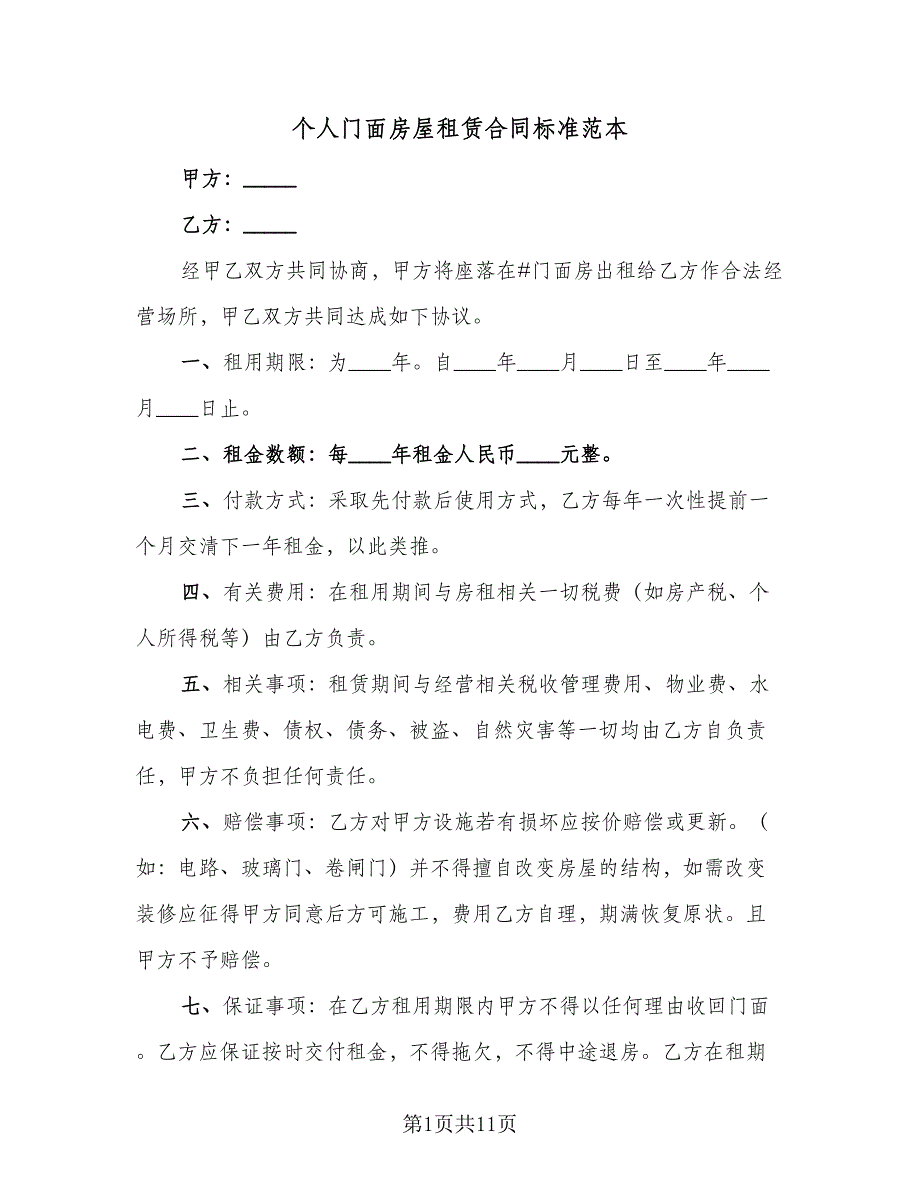 个人门面房屋租赁合同标准范本
甲方：_____
乙方：_____
经甲乙双方共同协商，甲方将座落在#门面房出租给乙方作合法经
营场所，甲乙双方共同达成如下协议。
一、租用期限：为____年。自____年____月____日至____年____
月____日止。
二、租金数额：每____年租金人民币____元整。
三、付款方式：采取先付款后使用方式，乙方每年一次性提前一
个月交清下一年租金，以此类推。
四、有关费用：在租用期间与房租相关一切税费（如房产税、个
人所得税等）由乙方负责。
五、相关事项：租赁期间与经营相关税收管理费用、物业费、水
电费、卫生费、债权、债务、被盗、自然灾害等一切均由乙方自负责
任，甲方不负担任何责任。
六、赔偿事项：乙方对甲方设施若有损坏应按价赔偿或更新。（
如：电路、玻璃门、卷闸门）并不得擅自改变房屋的结构，如需改变
装修应征得甲方同意后方可施工，费用乙方自理，期满恢复原状。且
甲方不予赔偿。
七、保证事项：在乙方租用期限内甲方不得以任何理由收回门面
。乙方应保证按时交付租金，不得拖欠，不得中途退房。乙方在租期
第1页共11页